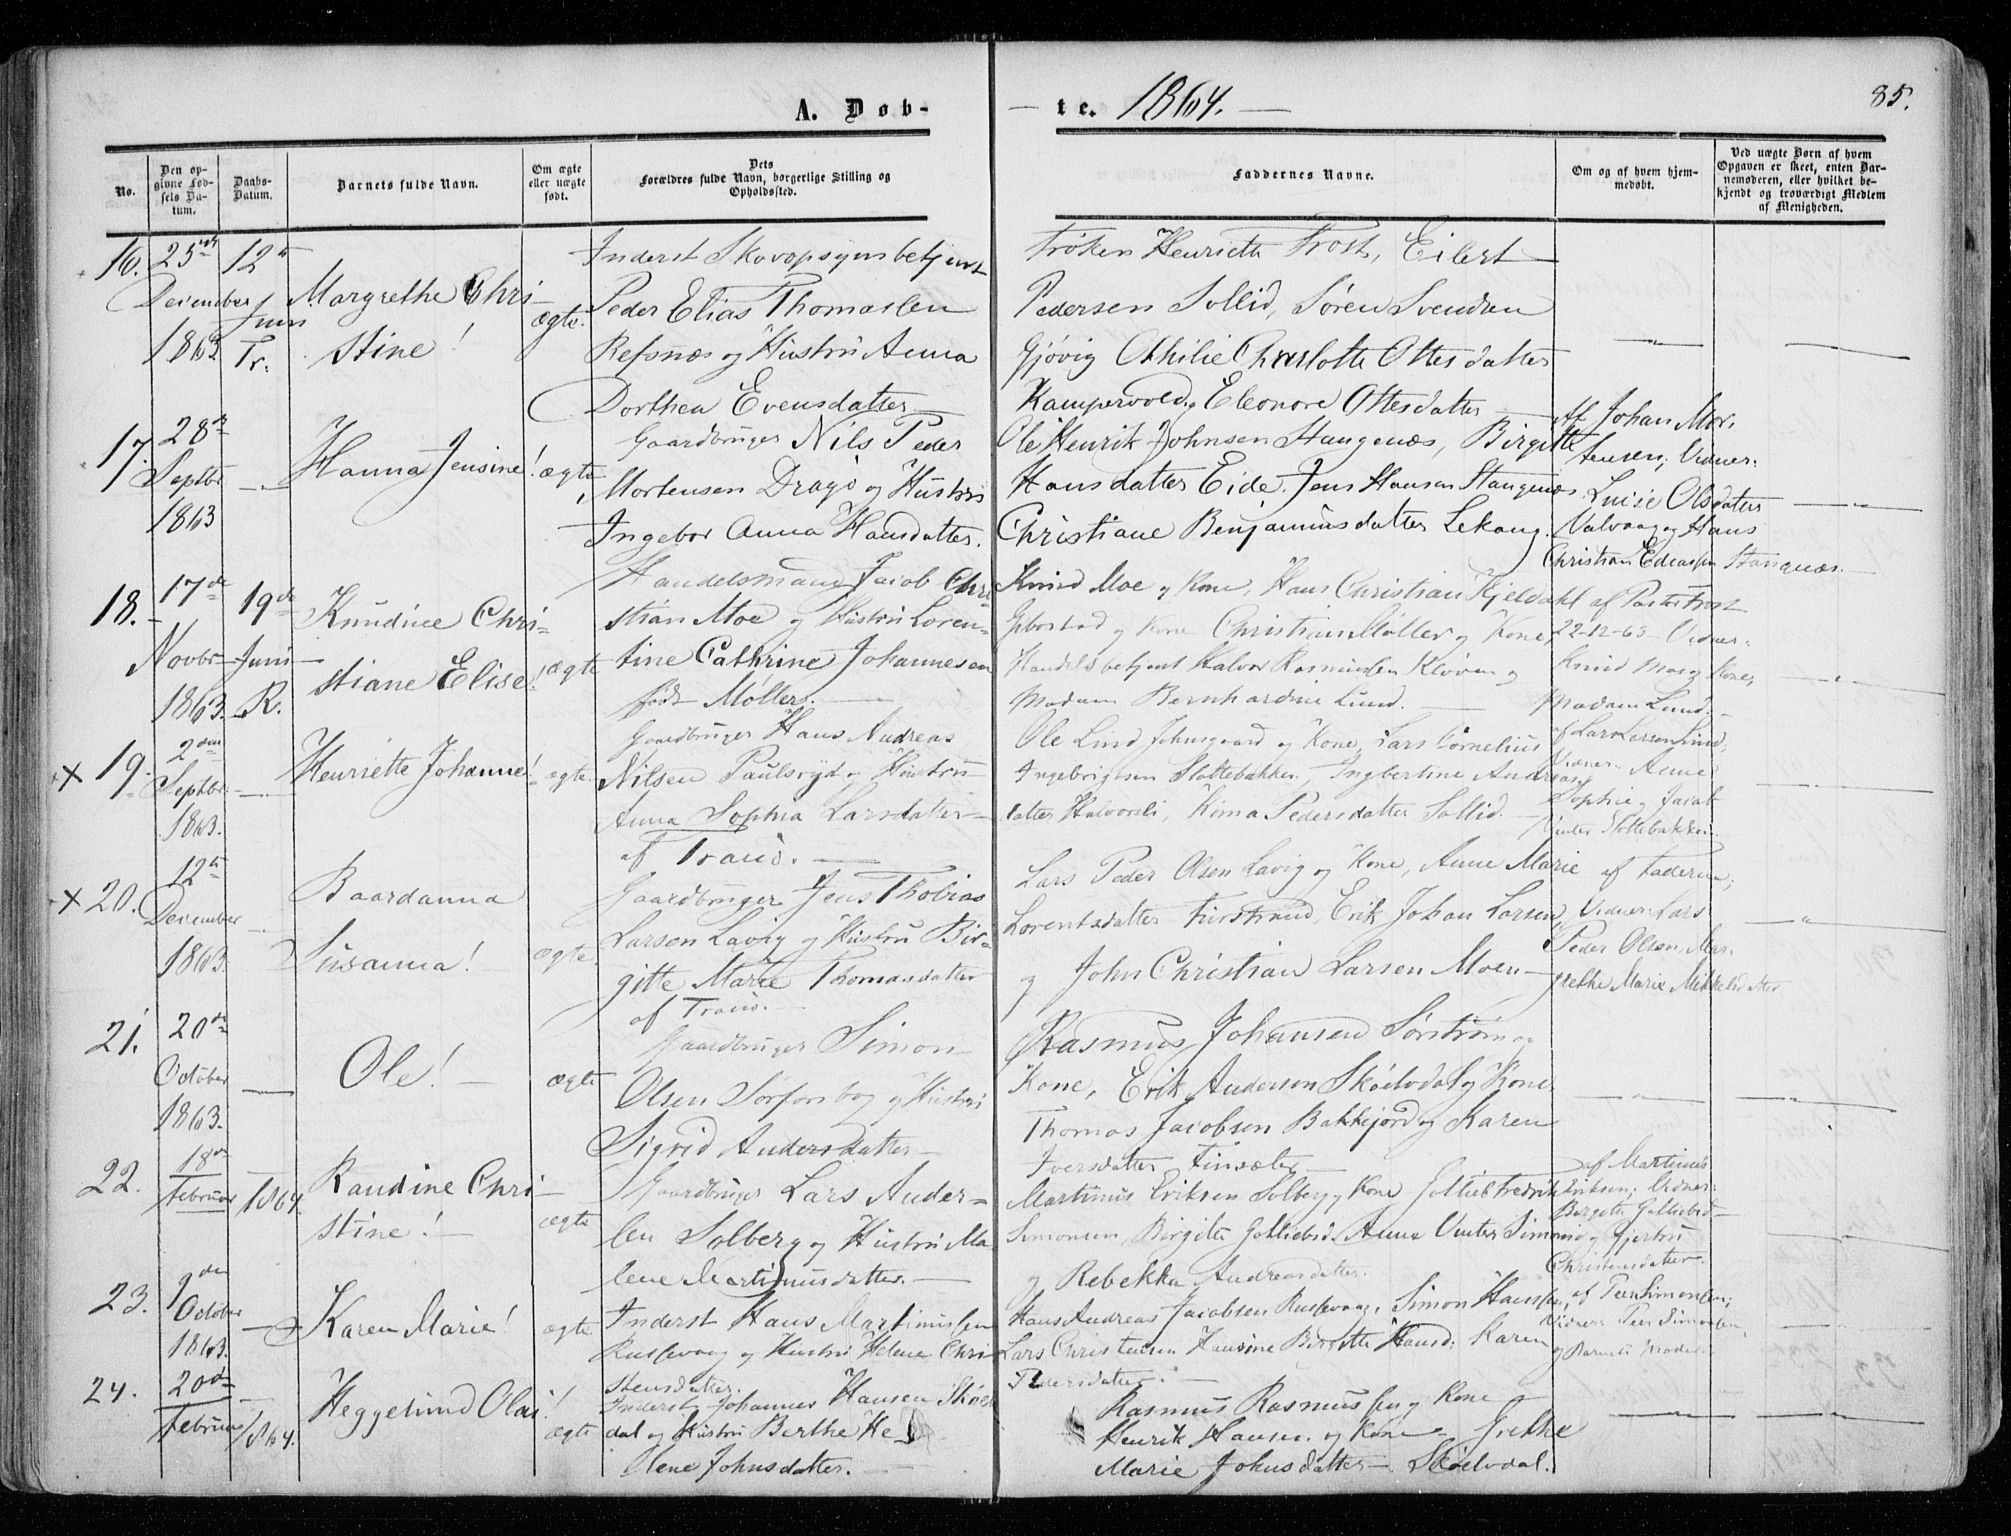 A. Døb-
te. 1864.
85.
No.
Den op-
givne Fød-
sels Da-
tum.
Daabs-
Datum.
Barnets fulde Navn.
Om ægte
eller uægte
født.
Dets
Forældres fulde Navn, borgerlige Stilling og
Opholdssted.
Faddernes Navne.
Om og af hvem hjem-
medøbt.
Ved uægte Børn af hvem
Opgaven er skeet, enten Bar-
nemoderen, eller hvilket be-
kjendt og troværdigt Medlem
af Menigheden.
16. 25de
December
1863.
12te
Juni
Tr.
Margrethe Chri-
stine!
ægte.
Inderst Skovopsynsbetjent
Peder Elias Thomassen
Refsnæs og Hustru Anna
Dorthea Evensdatter
Frøken Henriette Frost, Eilert
Pedersen Sollid, Søren Svendsen
Gjøvig Othilie Charlotte Ottesdatter
Kampevold, Eleonore Ottesdatter
17. 28de
Septbr
1863
Hanna Jensine!
ægte
Gaardbruger Nils Peder
Mortensen Dragø og Hustru
Ingebor Anna Hansdatter.
Ole Henrik Johnsen Stangenæs, Birgitte
Hansdatter Eide. Jens Hansen Stangenæs
Christiane Benjaminsdatter Lekang.
Af Johan Mor-
tensen; Vidner:
Lucie Olsdatter
Valvaag og Hans
Christian Edeassen Stangnæs.
18. 17de
Novbr
1863.
19de
Juni
R.
Knudine Chri-
stiane Elise!
ægte
Handelsmand Jacob Chri-
stian Moe og Hustru Loren-
tine Cathrine Johannesen
født Møller.
Knud Moe og Kone, Hans Christian Kjeldahl
Gibostad og Kone Christian Møller og Kone,
Handelsbetjent Halvor Rasmussen Kløven og
Madam Bernhardine Lund.
af Pastor Frost
22-12-63 Vidner:
Knud Moe og Kone,
Madam Lund.
x 19. 2den
Septbr.
1863.
Henriette Johanne!
ægte.
Gaardbruger Hans Andreas
Nilsen Paulsryd og Hustru
Anna Sophia Larsdatter
af Tranø.
Ole Lind Johnsgaard og Kone, Lars Cornelius
Ingebrigtsen Slottebakken Ingbertine Andreas-
datter Halvorsli, Kirna Pedersdatter Sollid.
af Lars Larsen Lind;
Vidner: Anne
Sophie og Jacob
Slottebakken.
x 20. 12te
December
1863.
Baardanna
Susanna!
ægte.
Gaardbruger Jens Thobias
Larsen Lavig og Hustru Bir-
gitte Marie Thomasdatter
af Tranø.
Lars Peder Olsen Lavig og Kone, Anne Marie
Lorentsdatter Finstrand, Erik Johan Larsen
og John Christian Larsen Moen
af Faderen;
Vidner: Lars
Peder Olsen, Mar-
grethe Marie Mikkelsdatter
21. 20de
October
1863.
Ole!
ægte
Gaardbruger Simon
Olsen Sørforsbog og Hustru
Sigrid Andersdatter
Rasmus Johansen Sørstrøm og
Kone, Erik Andersen Skøelvdal og Kone
Thomas Jacobsen Bakkejord og Karen
Iversdatter Finsæter
22. 18de
Februar
1864.
Randine Chri-
stine!
ægte
Gaardbruger Lars Ander-
sen Solberg og Hustru Ma-
lene Martinusdatter.
Martinus Eriksen Solberg og Kone Gottlieb Fredrik
Simonsen, Birgitte Gottliebsd. Anne Vinter Simonsd.
og Rebekka Andreasdatter.
af Martinus
Eriksen; Vidner:
Birgitte Gottliebsd
og Gjertru
Christensdatter.
23. 9den
October
1863.
Karen Marie!
ægte
Inderst Hans Martinussen
Russevaag og Hustru Helene Chri-
stensdatter.
Hans Andreas Jacobsen Russevaag, Simon Hanssen,
Lars Christensen Hansine Birgitte Hansd. Karen
Pedersdatter.
af Peer Simonsen;
Vidner: Peer Simonsen
og Barnets Moder.
24. 20de
Februar
1864.
Heggelund Olai!
ægte
Inderst Johannes Hansen Skøel-
dal og Hustru Berthe He
lene Johnsdatter.
Rasmus Rasmussen og Kone
Henrik Hansen og Kone Grethe
Marie Johnsdatter Skøelvdal.